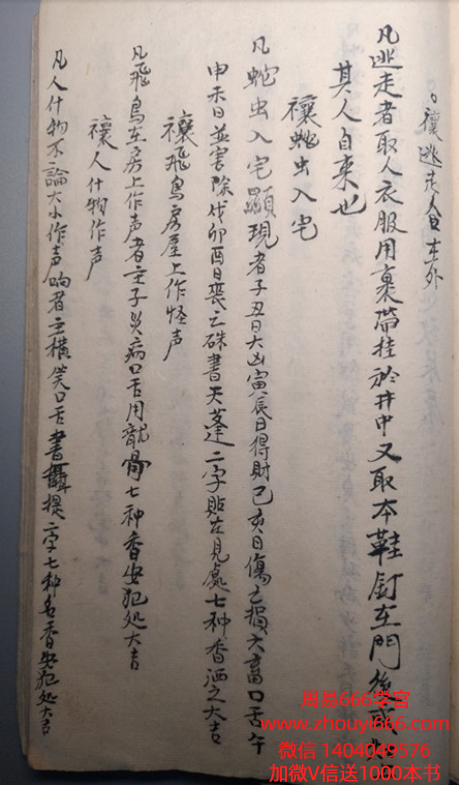 禳逃走人口在外
凡逃走者取人衣服用裹帶挂於井中又取本鞋釘在門後
其人自来也
禳蛇虫入宅
凡蛇虫入宅顯現者子丑日大凶寅辰日得財巳亥日傷亡損六畜口舌午
申未日並害除戊卯酉日喪亡硃書天蓬二字貼在見處七种香洒之大吉
禳飛鳥房屋上作怪声
凡飛鳥在房上作声者主子灾病口舌用龍骨七种香安犯处大吉
禳人什物作声
凡人什物不論大小作声响者主横笑口舌書攝提二字七种名香安犯处大吉
周易666学官
www.zhouyi666.com
微信 1404049576
加微V信送1000本书